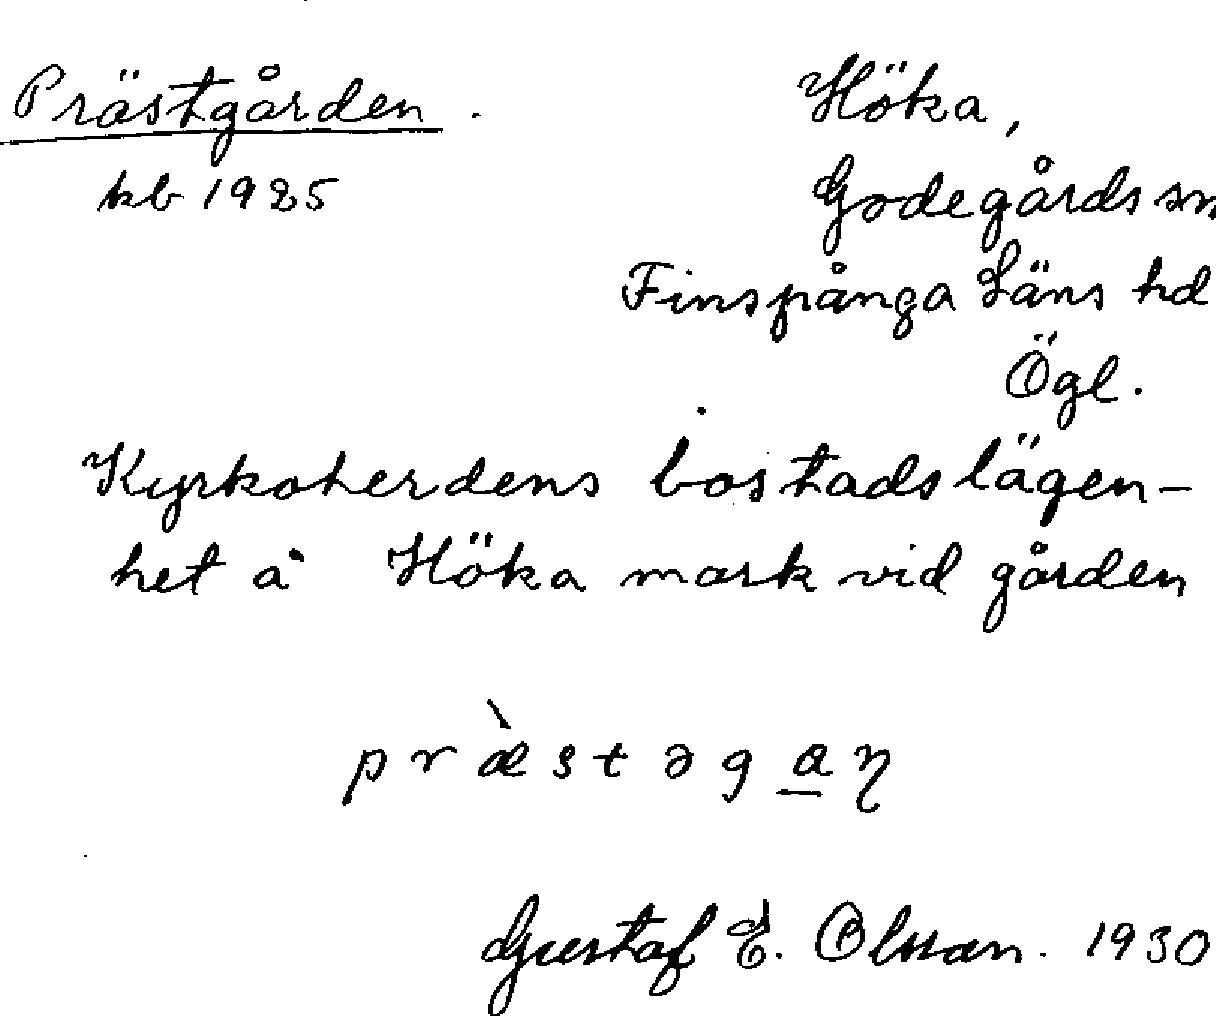 Prästgården.
kb 1925
Höka,
Godegårds sn
Finspånga Läns hd
Ögl.
Kyrkoherdens bostadslägen-
het å Höka mark vid gården
præ̀stəgaŋ
Gustaf E. Olsson. 1930